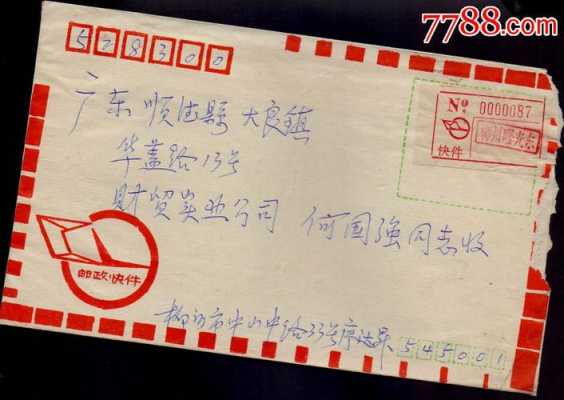 7788.com
528300
广东顺德縣大良鎮
华盖路13号
財贸实业公司 何国强同志收
№ 0000087
快件
邮政快件
柳州市中山中路33号
545001